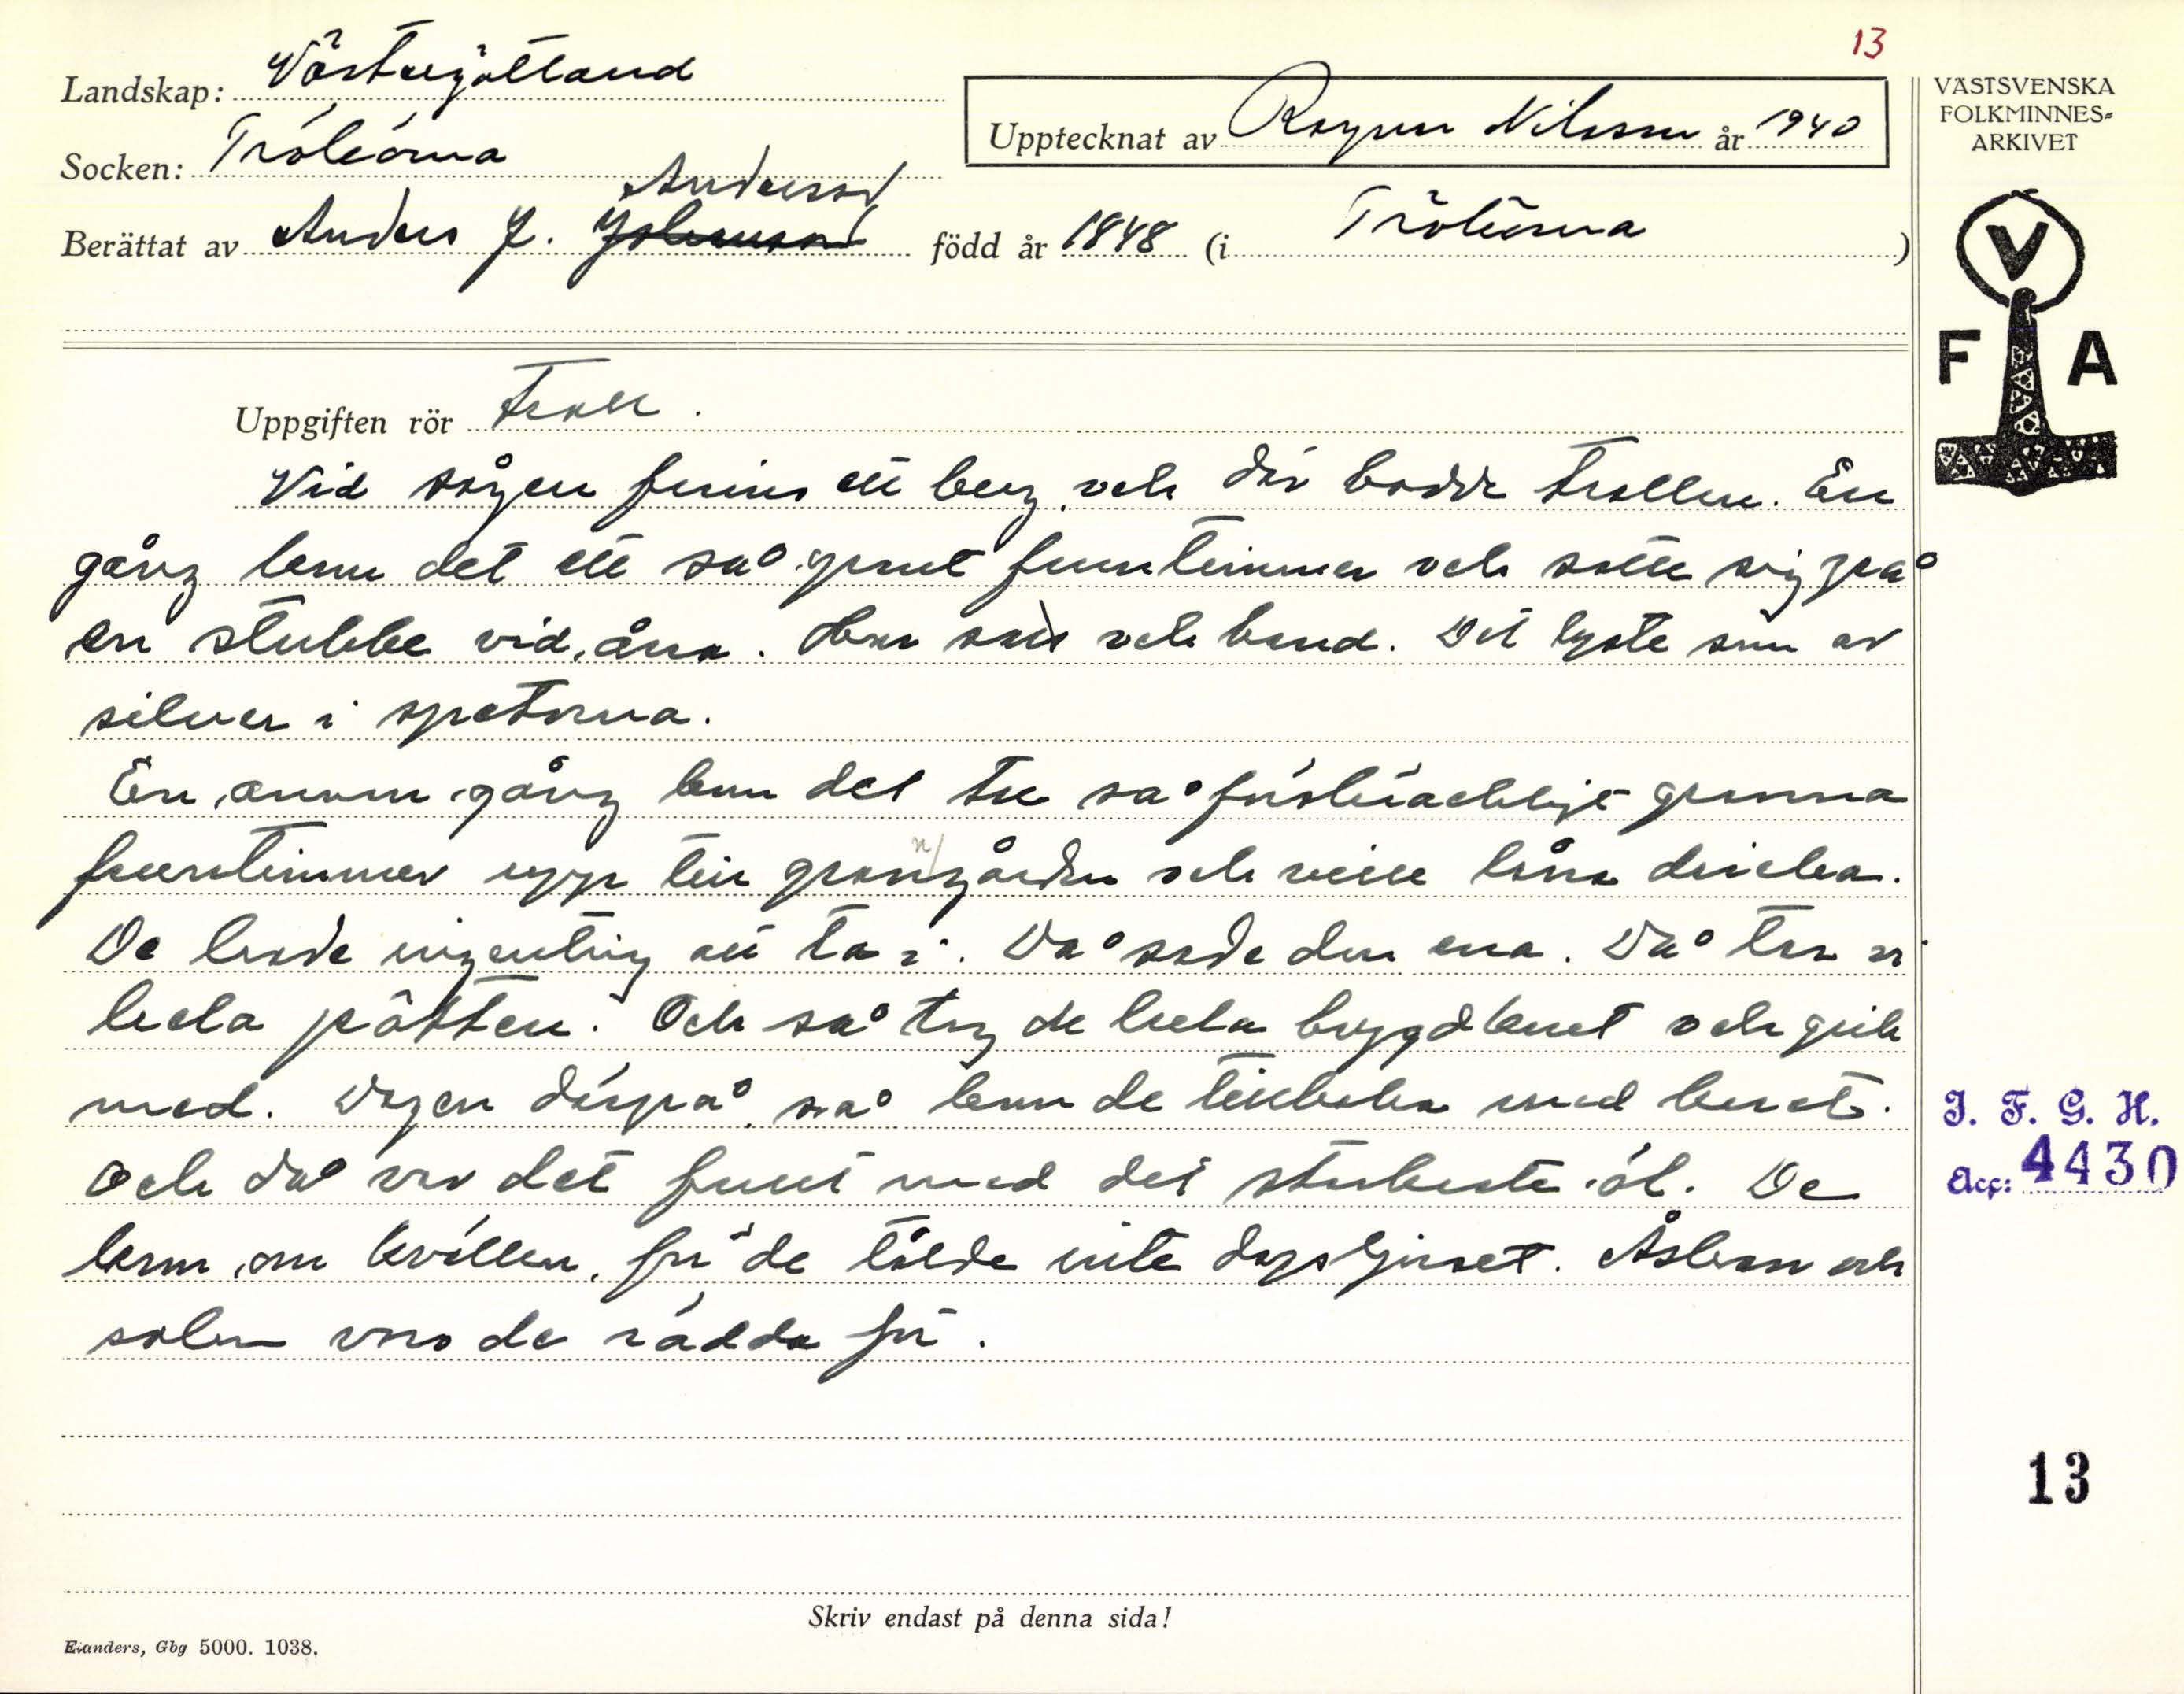 13
Landskap: Västergötland
Upptecknat av Ragnar Nilsson år 1940
VÄSTSVENSKA
FOLKMINNES=
ARKIVET
Socken: Trökörna
Anderson
Berättat av Anders J. Johansson född år 1848 (i Trökörna)
V
F A
Uppgiften rör Troll.
Vid sågen finns ett berg, och där bodde trollen. En
gång kom det ett så grant fruntimmer och satte sig på
en stubbe vid åna. Hon satt och band. Det lyste som av
silver i spetorna.
En annan gång kom det två så förskräckligt granna
fruntimmer upp till granngården och ville låna dricka.
De hade ingenting att ta i. Då sade den ena. Då tar vi
hela pötten. Och så tog de hela bryggdkaret och gick
med. Dagen därpå, så kom de tillbaka med karet.
Och då var det fullt med det starkaste öl. De
kom om kvällen, för de tålde inte dagsljuset. Åskan och
solen voro de rädda för.
I. F. G. H.
Acc: 4430
13
Skriv endast på denna sida!
Elanders, Gbg 5000. 1038.